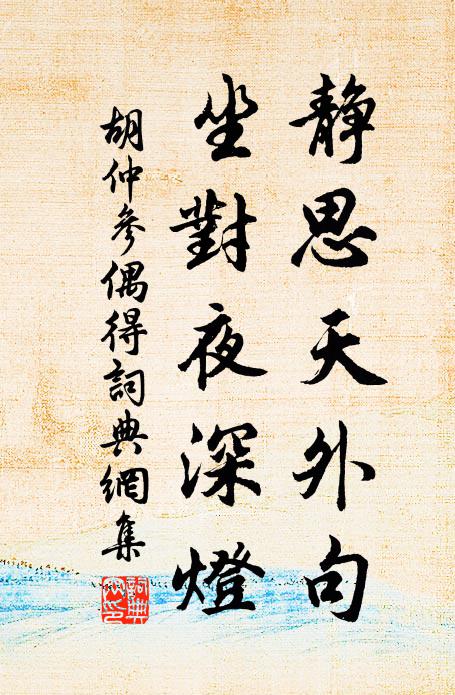 静思天外句
坐對夜深燈
胡仲參偶得詞典網集